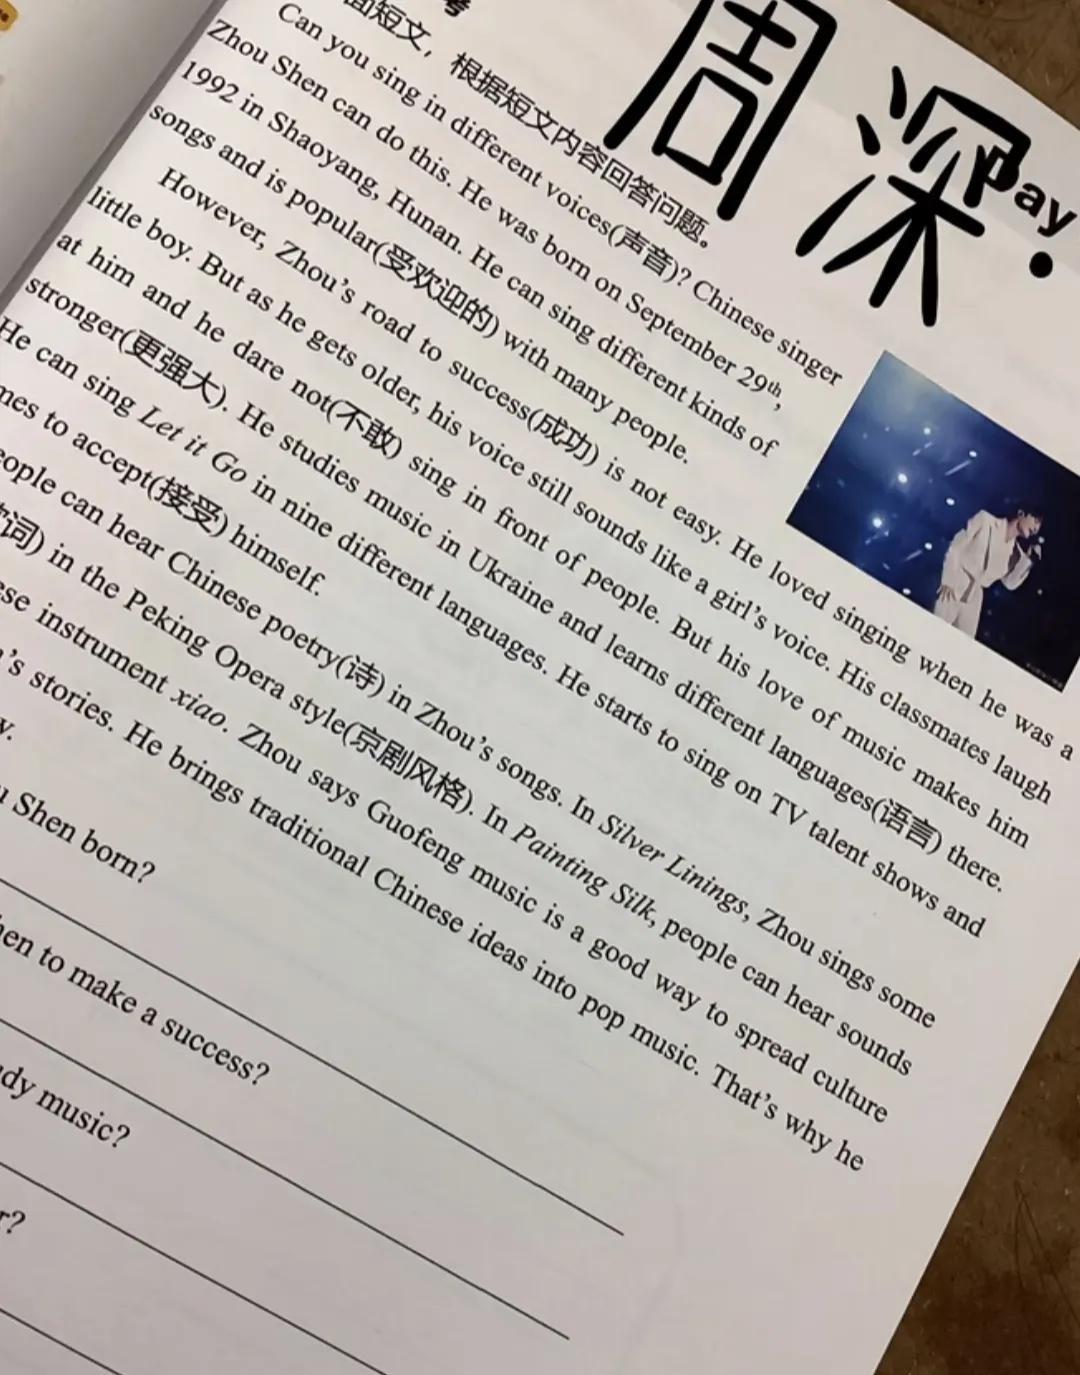 周深
ay.
面短文，根据短文内容回答问题。
Can you sing in different voices(声音)? Chinese singer
Zhou Shen can do this. He was born on September 29th,
1992 in Shaoyang, Hunan. He can sing different kinds of
songs and is popular(受欢迎的) with many people.
However, Zhou's road to success(成功) is not easy. He loved singing when he was a
little boy. But as he gets older, his voice still sounds like a girl's voice. His classmates laugh
at him and he dare not(不敢) sing in front of people. But his love of music makes him
stronger(更强大). He studies music in Ukraine and learns different languages(语言) there.
He can sing Let it Go in nine different languages. He starts to sing on TV talent shows and
mes to accept(接受) himself.
eople can hear Chinese poetry(诗) in Zhou's songs. In Silver Linings, Zhou sings some
词) in the Peking Opera style(京剧风格). In Painting Silk, people can hear sounds
ese instrument xiao. Zhou says Guofeng music is a good way to spread culture
's stories. He brings traditional Chinese ideas into pop music. That's why he
y.
u Shen born?
hen to make a success?
dy music?
r?